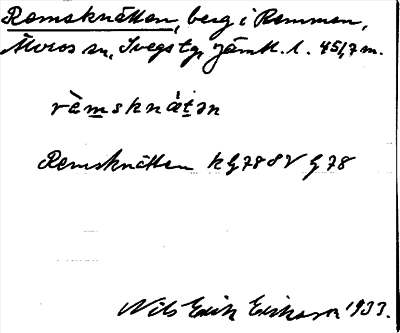 Remsknätten, berg i Remmen,
Älvros sn, Svegs tg, Jämtl. l. 451,7 m.
rèmsknàtən
Remsknätten kG78SV G78
Nils Erik Erikson 1933.